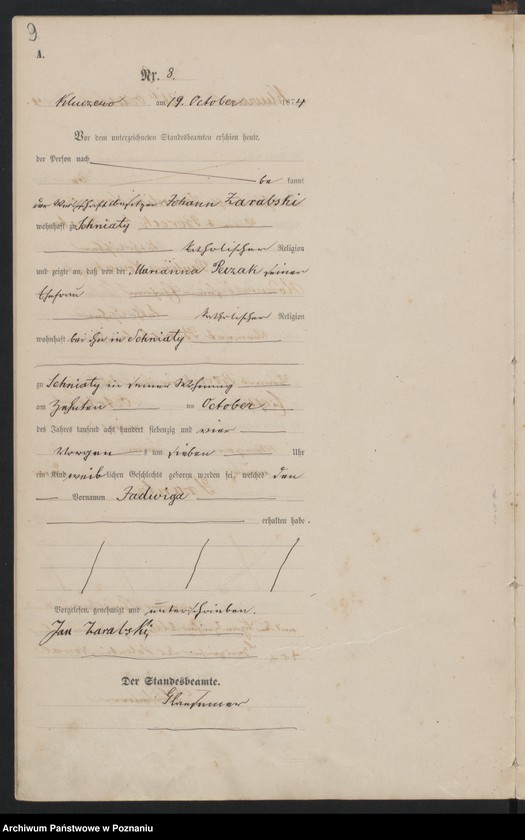 9
A.
Nr. 8.
Kluczewo am 19. October 1874
Vor dem unterzeichneten Standesbeamten erschien heute,
der Person nach
be kannt
der Wirthschaftsbesitzer Johann Zarabski
wohnhaft zu Schniaty
katholischer Religion
und zeigte an, daß von der Marianna seiner
Ehefrau
katholischer Religion
wohnhaft bei ihm in Schniaty
zu Schniaty in seiner Wohnung
am Zehnten im October
des Jahres tausend acht hundert siebenzig und vier
Morgen s um sieben Uhr
ein Kind weib lichen Geschlechts geboren worden sei, welches den
Vornamen Jadwiga
erhalten habe.
Vorgelesen, genehmigt und unterschrieben.
Jan Zarabski
Der Standesbeamte.
Archiwum Państwowe w Poznaniu